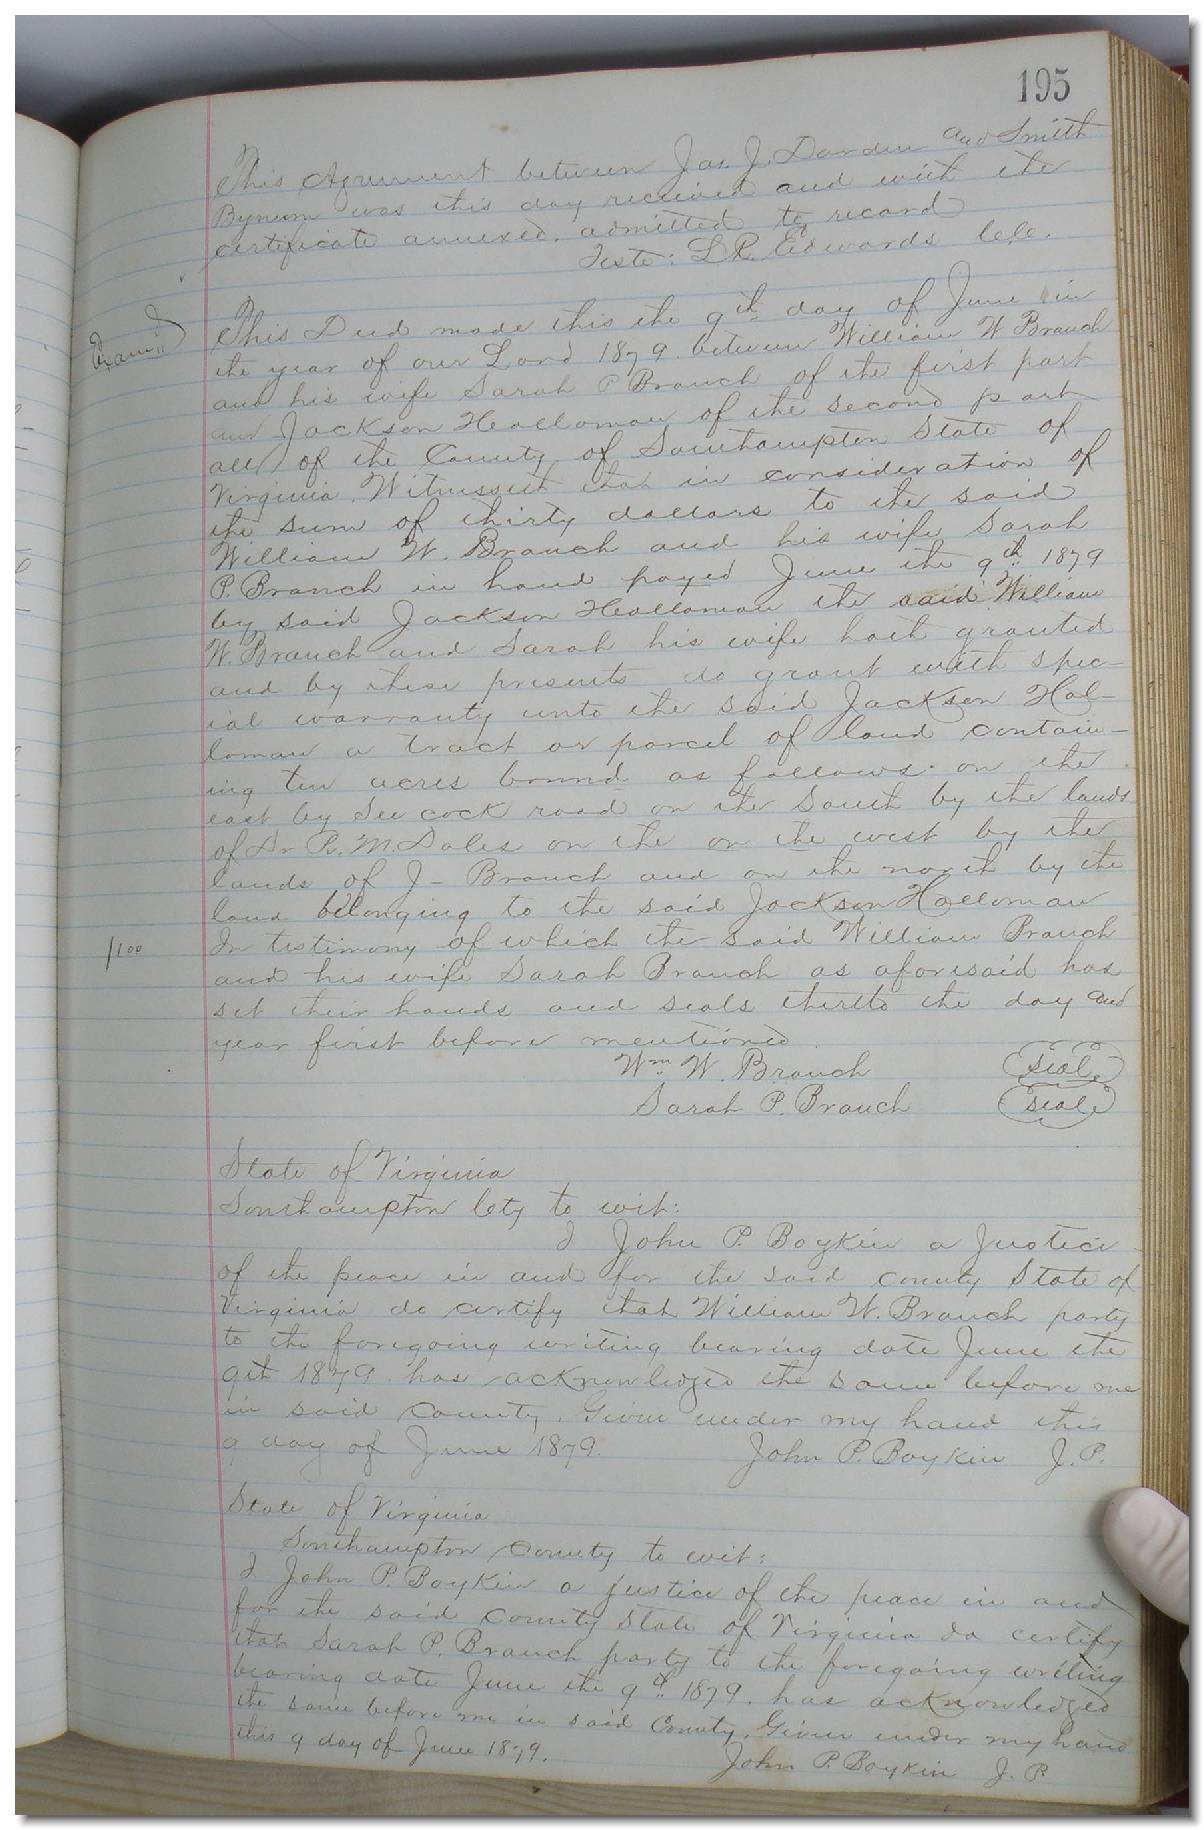 195
This Agreement between Jas. J. Darden and Smith
Bynum was this day received and with the
certificate annexed, admitted to record
Teste: L R. Edwards C.C.
Exam.d
This Deed made this the 9th day of June in
the year of our Lord 1879. between William W Branch
and his wife Sarah P Branch of the first part
and Jackson Holloman of the second part
all of the County of Southampton State of
Virginia. Witnesseth that in consideration of
the sum of thirty dollars to the said
William W. Branch and his wife Sarah
P. Branch in hand payed June the 9th 1879
by said Jackson Holloman the said William
W. Branch and Sarah his wife hath granted
and by these presents do grant with spec-
ial warranty unto the said Jackson Hol-
loman a tract or parcel of land contain-
ing ten acres bound as follows. on the
east by See cock road on the South by the lands
of Dr R. M. Dales on the on the west by the
lands of J- Branch and on the north by the
land belonging to the said Jackson Holloman
1/100
In testimony of which the said William Branch
and his wife Sarah Branch as aforesaid has
set their hands and seals thereto the day and
year first before mentioned.
Wm W. Branch (seal)
Sarah P. Branch (seal)
State of Virginia
Southampton Cty to wit:
I John P. Boykin a Justice
of the peace in and for the said county State of
Virginia do certify that William W. Branch party
to the foregoing writing bearing date June the
9th 1879. has acknowledged the same before me
in said county. Given under my hand this
9 day of June 1879. John P. Boykin J.P.
State of Virginia
Southampton county to wit:
I John P. Boykin a justice of the peace in and
for the said county State of Virginia do certify
that Sarah P. Branch party to the foregoing writing
bearing date June the 9th 1879. has acknowledged
the same before me in said County. Given under my hand
this 9 day of June 1879. John P. Boykin J. P.